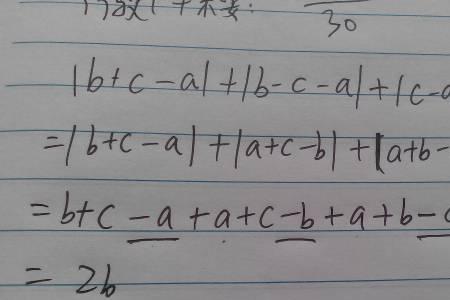 30
|b+c-a|+|b-c-a|+|c-a
=|b+c-a|+|a+c-b|+|a+b-
=b+c-a+a+c-b+a+b-c
= 2b